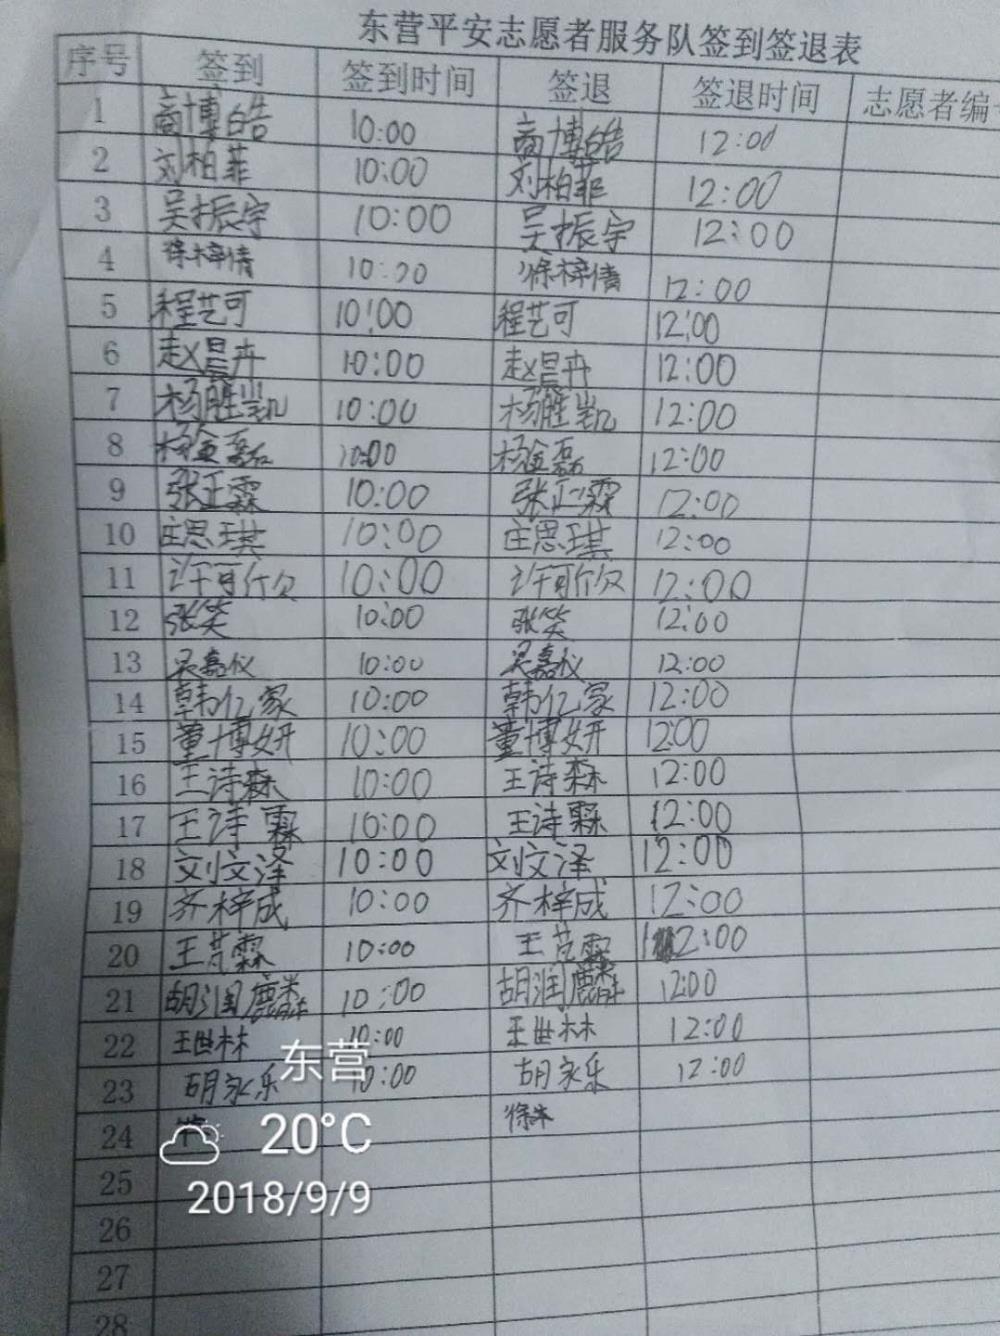 东营平安志愿者服务队签到签退表
序号 签到 签到时间 签退 签退时间 志愿者编
1 商博皓 10:00 商博皓 12:00
2 刘柏菲 10:00 刘柏菲 12:00
3 吴振宇 10:00 吴振宇 12:00
4 徐梓倩 10:00 徐梓倩 12:00
5 程艺可 10:00 程艺可 12:00
6 赵晨卉 10:00 赵晨卉 12:00
7 杨胜凯 10:00 杨胜凯 12:00
8 杨金磊 10:00 杨金磊 12:00
9 张正霖 10:00 张正霖 12:00
10 庄思琪 10:00 庄思琪 12:00
11 许可欣 10:00 许可欣 12:00
12 张笑 10:00 张笑 12:00
13 吴嘉仪 10:00 吴嘉仪 12:00
14 韩亿家 10:00 韩亿家 12:00
15 董博妍 10:00 董博妍 12:00
16 王诗森 10:00 王诗森 12:00
17 王诗霖 10:00 王诗霖 12:00
18 刘文泽 10:00 刘文泽 12:00
19 齐梓成 10:00 齐梓成 12:00
20 王艺霖 10:00 王艺霖 12:00
21 胡润麟 10:00 胡润麟 12:00
22 王世林 10:00 王世林 12:00
23 胡家乐 10:00 胡家乐 12:00
东营
24 徐
20°C
25
2018/9/9
26
27
28